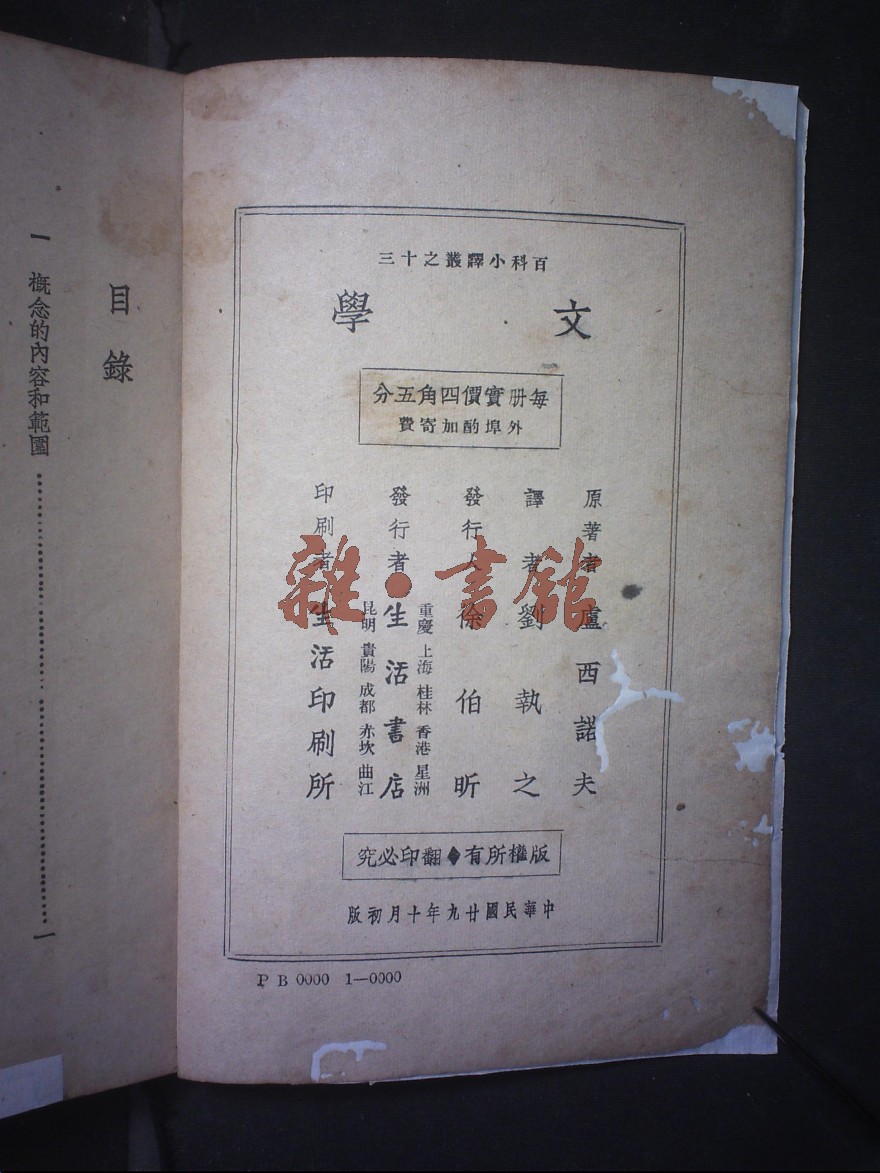 百科小譯叢之十三
文學
每册實價四角五分
外埠酌加寄費
原著者 盧西諾夫
譯者 劉執之
發行人 徐伯昕
發行者 生活書店
重慶 上海 桂林 香港 星洲
昆明 貴陽 成都 赤坎 曲江
印刷者 生活印刷所
版權所有◆翻印必究
中華民國廿九年十月初版
P B 0000 1—0000
目錄
一 概念的內容和範圍……一
雜·書館